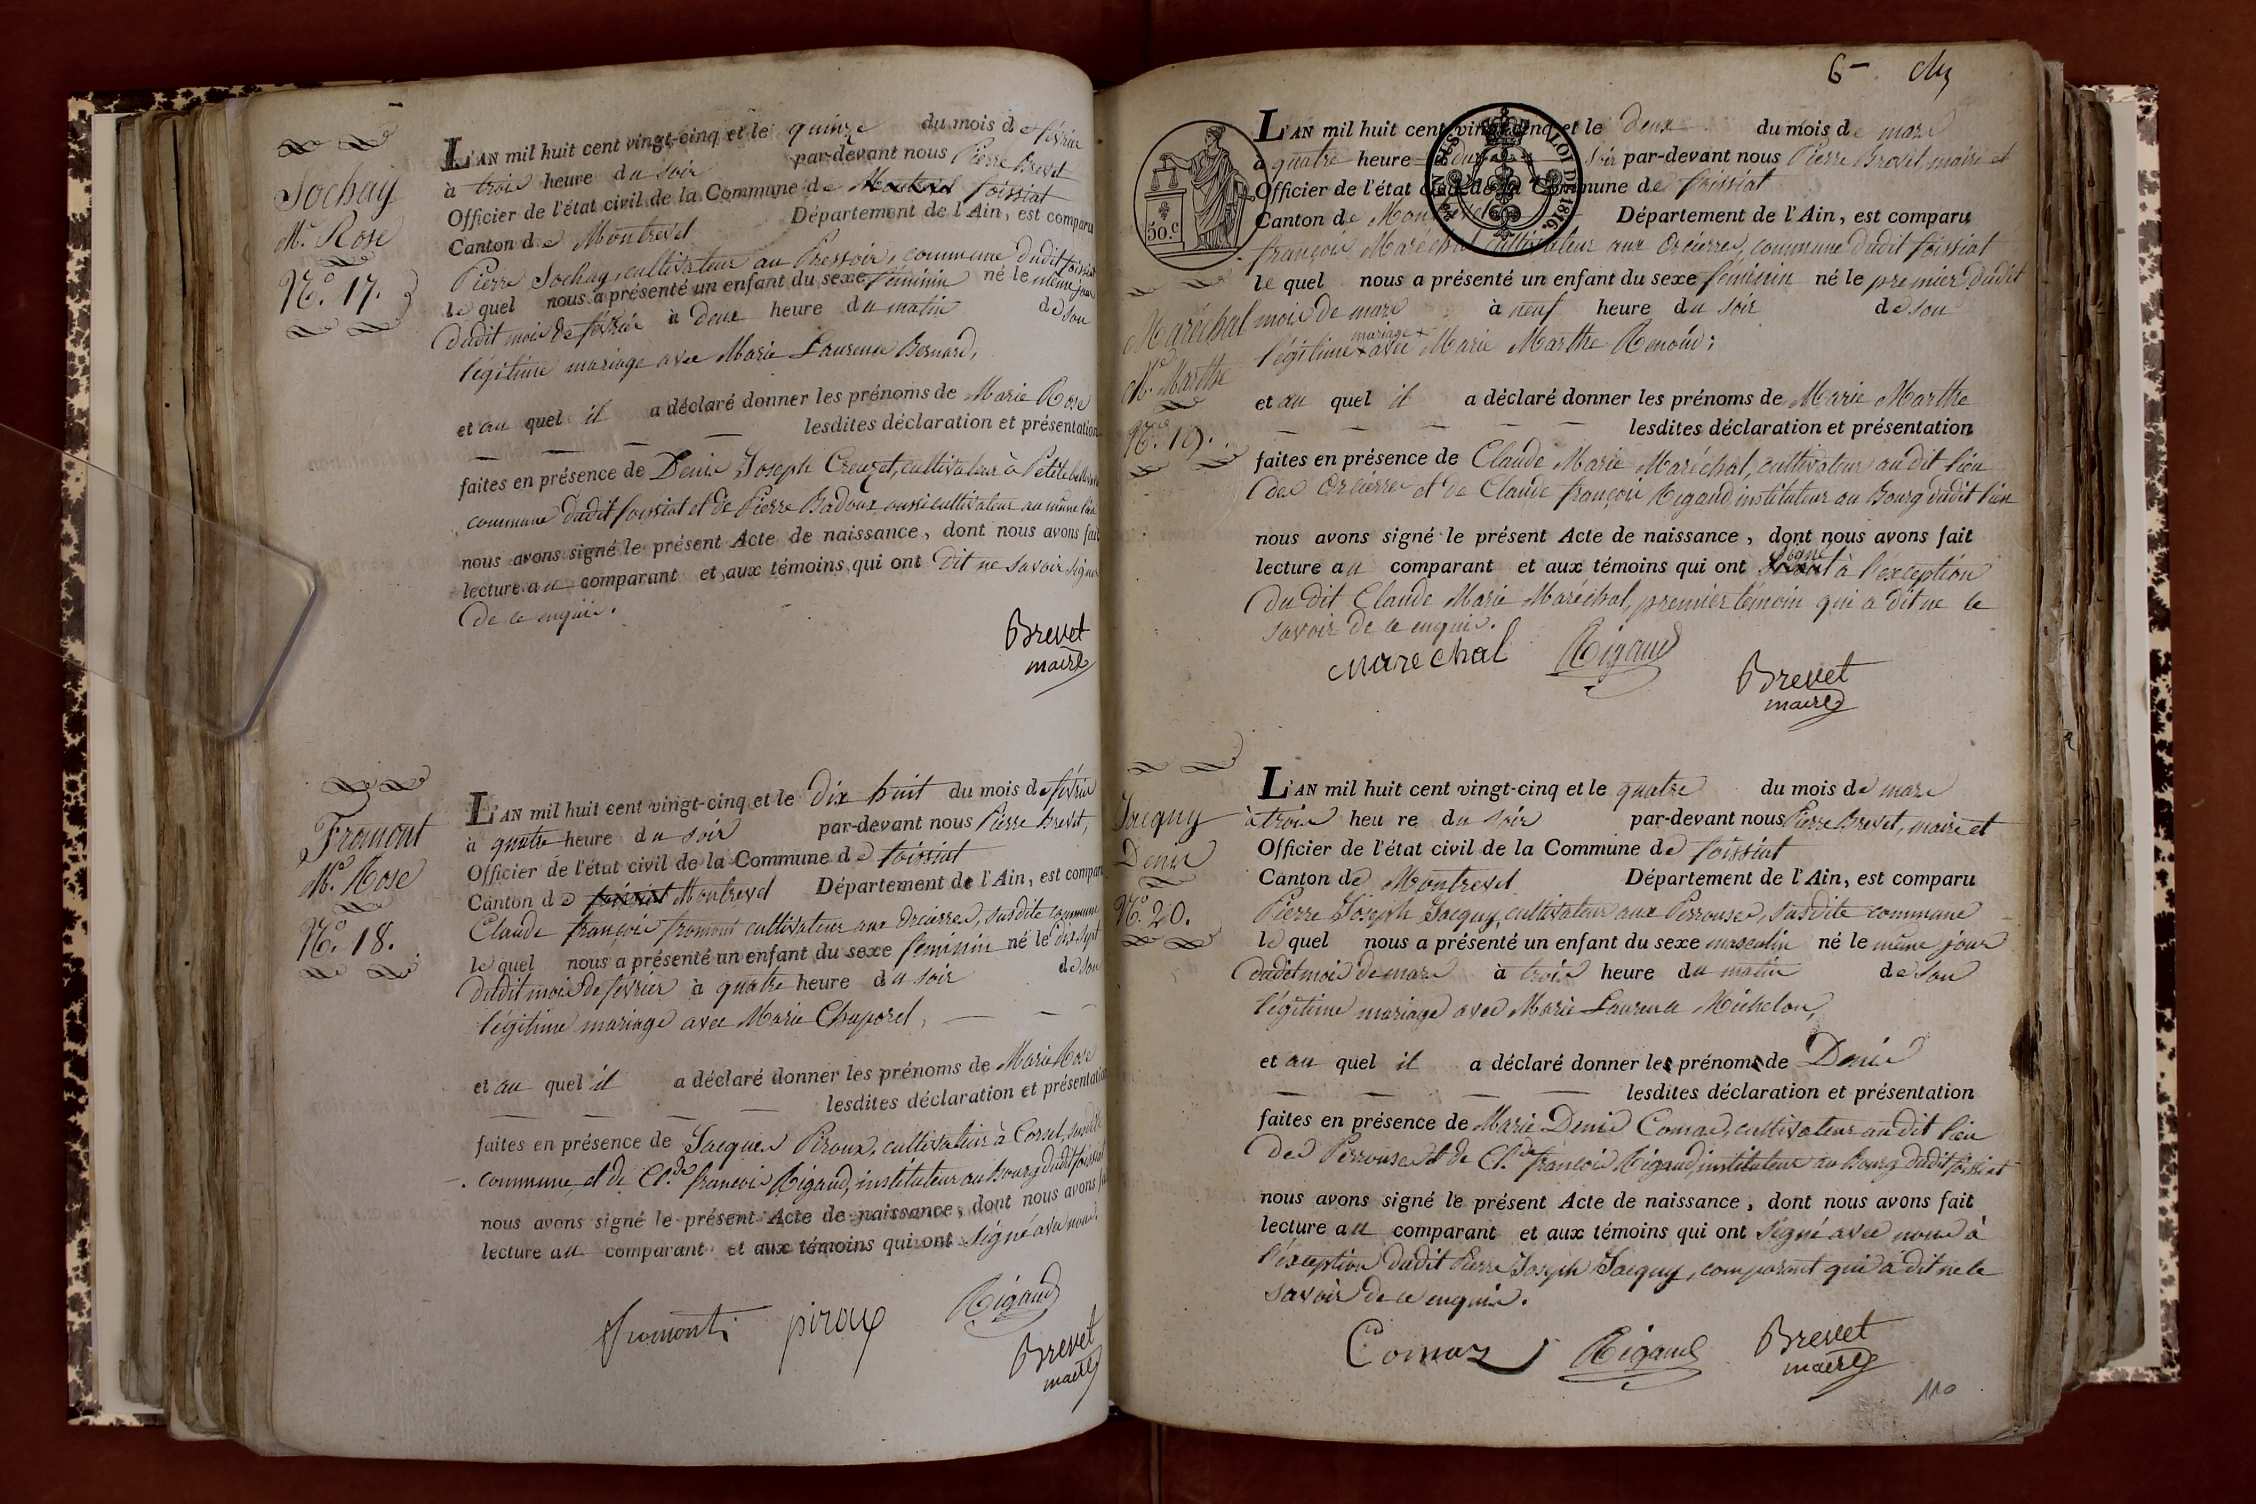 Sochay
Mie Rose
No. 17.
L'AN mil huit cent vingt-cinq et le quinze du mois de février
à trois heure du soir par-devant nous Pierre Brevet
Officier de l'état civil de la Commune de foissiat
Canton de Montrevel Département de l'Ain, est comparu
Pierre Sochay, cultivateur au Pressoir, commune dudit foissiat
le quel nous a présenté un enfant du sexe féminin né le même jour
dudit mois de février à deux heure du matin de son
légitime mariage avec Marie Laurence Bernard,
et au quel il a déclaré donner les prénoms de Marie Rose
lesdites déclaration et présentation
faites en présence de Denis Joseph Creuzet, cultivateur à
commune dudit foissiat et de Pierre Badoux aussi cultivateur au même lieu
nous avons signé le présent Acte de naissance, dont nous avons fait
lecture au comparant et aux témoins qui ont dit ne savoir signer
de ce enquis.
Brevet
maire
Fromont
Mie Rose
No. 18.
L'AN mil huit cent vingt-cinq et le dix huit du mois de février
à quatre heure du soir par-devant nous Pierre Brevet,
Officier de l'état civil de la Commune de foissiat
Canton de foissiat Montrevel Département de l'Ain, est comparu
Claude françois fromont cultivateur aux Orcières, susdite commune
le quel nous a présenté un enfant du sexe féminin né le dix sept
dudit mois de février à quatre heure du soir de son
légitime mariage avec Marie Chaporel,
et au quel il a déclaré donner les prénoms de Marie Rose
lesdites déclaration et présentation
faites en présence de Jacques Piroux, cultivateur à Cornet, susdite
commune, et de Cl.de françois Rigaud, instituteur au Bourg dudit foissiat
nous avons signé le présent Acte de naissance, dont nous avons fait
lecture au comparant et aux témoins qui ont signé avec nous.
fromont piroux Rigaud
Brevet
maire
6
50.c
LOI DE 1816.
Maréchal
Mie Marthe
No. 19.
L'AN mil huit cent vingt-cinq et le deux du mois de mars
à quatre heure du soir par-devant nous Pierre Brevet maire et
Officier de l'état civil de la Commune de foissiat
Canton de Montrevel Département de l'Ain, est comparu
françois Maréchal cultivateur aux Orcières, commune dudit foissiat
le quel nous a présenté un enfant du sexe féminin né le premier dudit
mois de mars à neuf heure du soir de son
légitime mariage avec Marie Marthe Renoud;
et au quel il a déclaré donner les prénoms de Marie Marthe
lesdites déclaration et présentation
faites en présence de Claude Marie Maréchal, cultivateur audit lieu
des Orcières et de Claude françois Rigaud instituteur au Bourg dudit lieu
nous avons signé le présent Acte de naissance, dont nous avons fait
lecture au comparant et aux témoins qui ont signé à l'éxception
du dit Claude Marie Maréchal, premier témoin qui a dit ne le
savoir de ce enquis.
marechal Rigaud
Brevet
maire
Jacquy
Denis
No. 20.
L'AN mil huit cent vingt-cinq et le quatre du mois de mars
à trois heure du soir par-devant nous Pierre Brevet, maire et
Officier de l'état civil de la Commune de foissiat
Canton de Montrevel Département de l'Ain, est comparu
Pierre Joseph Jacquy, cultivateur aux Perrouses, susdite commune
le quel nous a présenté un enfant du sexe masculin né le même jour
dudit mois de mars à trois heure du matin de son
légitime mariage avec Marie Laurence Michelon,
et au quel il a déclaré donner les prénoms de Denis
lesdites déclaration et présentation
faites en présence de Marie Denis Comas, cultivateur audit lieu
des Perrouses et de Cl.de françois Rigaud, instituteur au Bourg dudit foissiat
nous avons signé le présent Acte de naissance, dont nous avons fait
lecture au comparant et aux témoins qui ont signé avec nous à
l'éxception dudit Pierre Joseph Jacquy, comparant qui a dit ne le
savoir de ce enquis.
Comaz Rigaud Brevet
maire
110